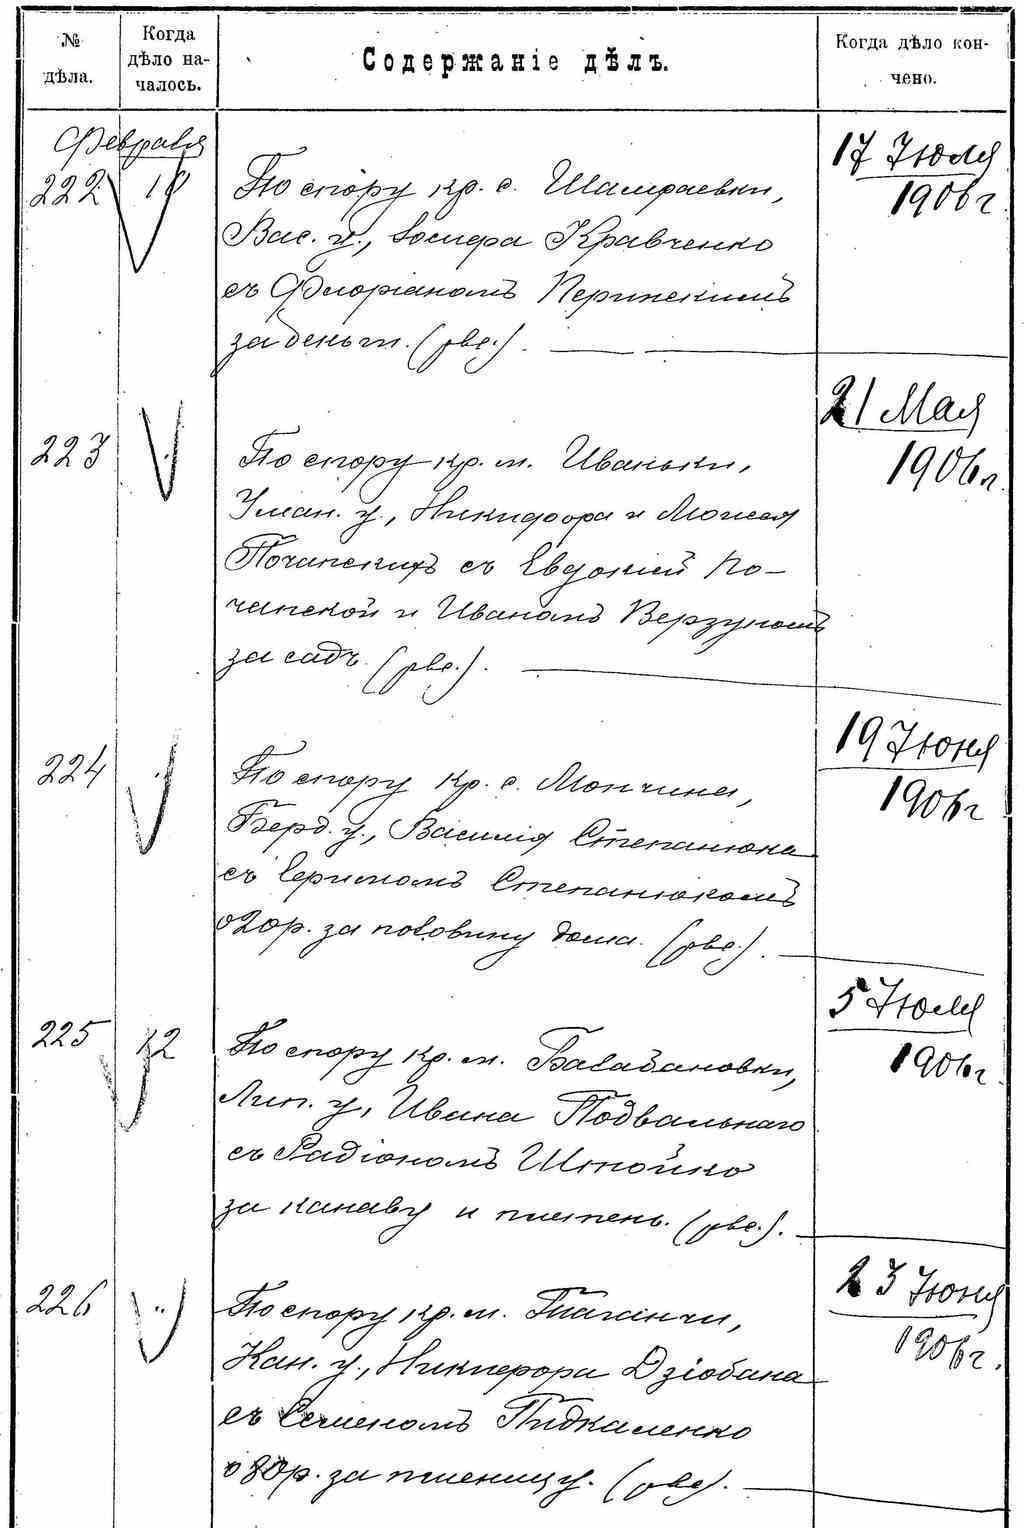 № дѣла.
Когда дѣло на-
чалось.
Содержаніе дѣлъ.
Когда дѣло кон-
чено.
Февраля
222
По спору кр. с. Шамраевки,
Вас. у., Іосифа Кравченко
съ Флоріаномъ
за деньги. (рве.).
17 Іюля
1906 г
223
По спору кр. м. Иваньки,
Уман. у., Никифора и Моисея
Почапскихъ съ Евдокіей По-
чапской и Иваномъ Верзуномъ
за садъ. (рве.).
21 Мая
1906 г.
224
По спору кр. с. Мончина,
Берд. у., Василія Степанюка
съ Ефимомъ Степанюкомъ
о 20 р. за половину дома. (рве.).
19 Іюня
1906 г
225 12
По спору кр. м. Балабановки,
Лип. у., Ивана Подвальнаго
съ Радіономъ Шпойко
за канаву и плетень. (рве.).
5 Іюля
1906 г.
226 "
По спору кр. м. Таганчи,
Кан. у., Никифора Дзіобана
съ Семеномъ Пидкаленко
о 80 р. за пшеницу. (рве).
23 Іюня
1906 г.